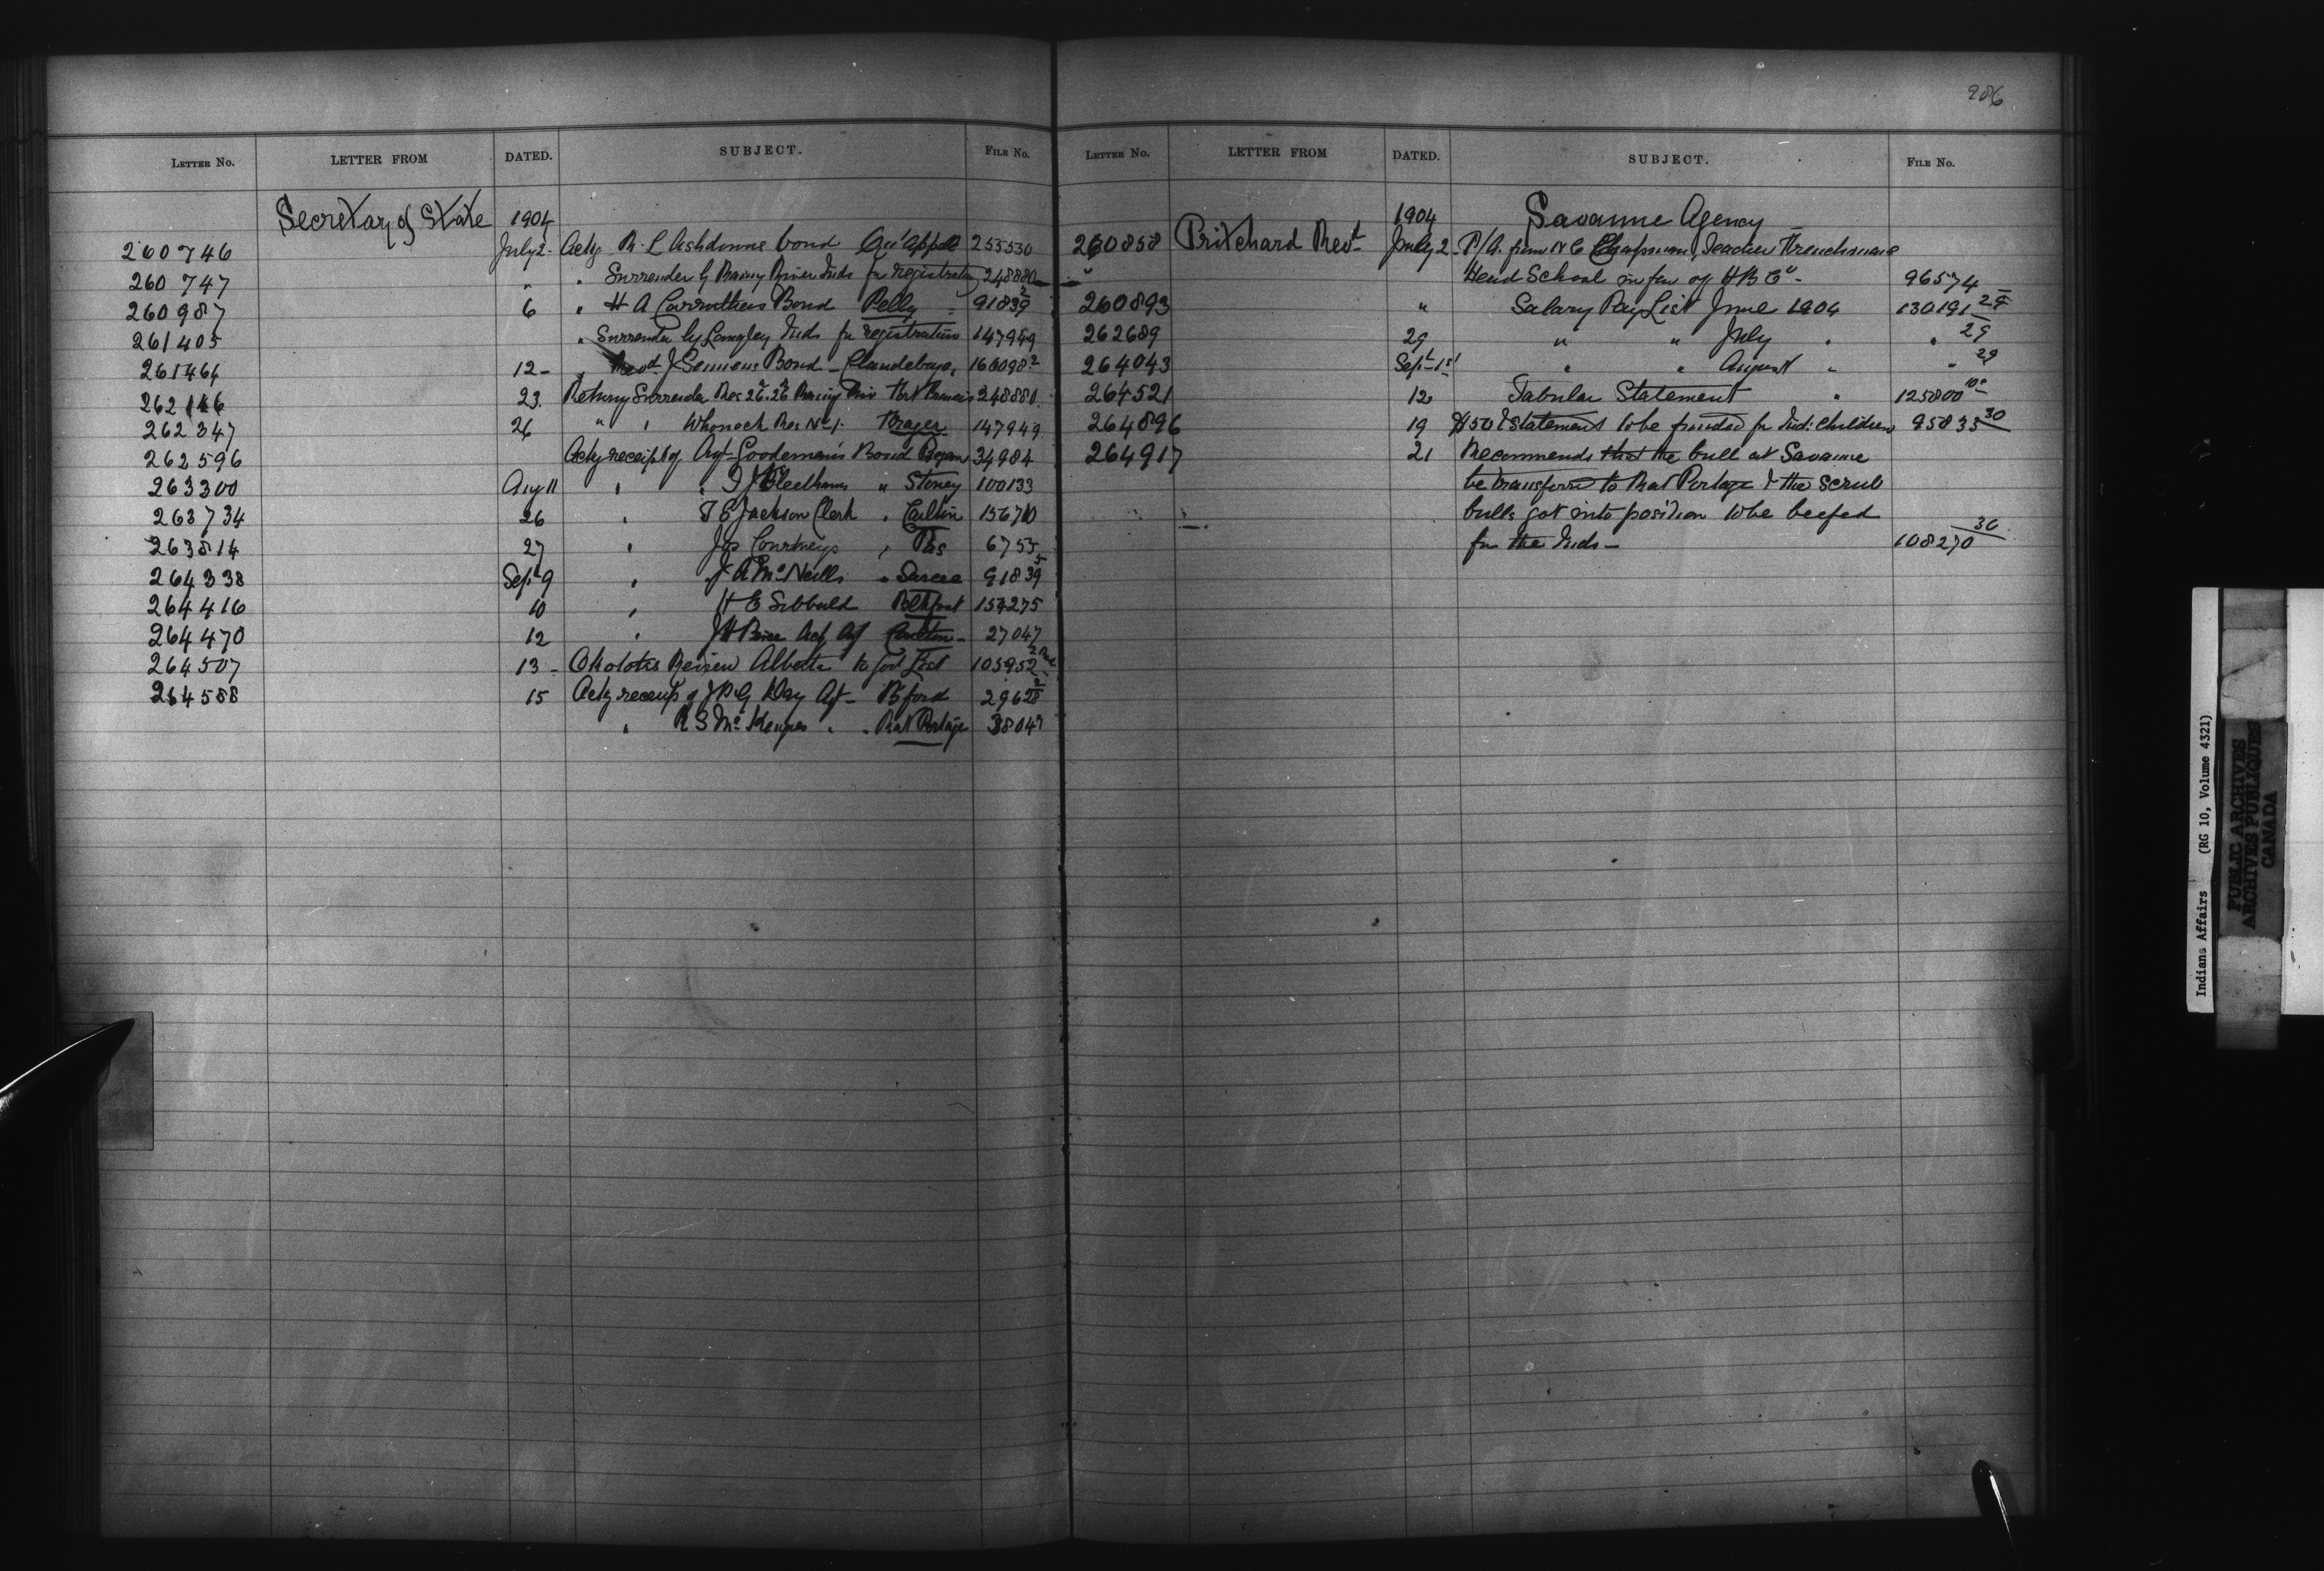 206
LETTER NO. LETTER FROM DATED. SUBJECT. FILE NO.
Secretary of State 1904
260746 July 2- Ackg R. L Ashdowns bond Qu'Appelle 255530
260747 " " Surrender by Rainy River Inds for registration 248880
260987 6 " H A Carruthers Bond Pelly 91839
261405 " Surrender by Langley Inds for registration 147949
261464 12- " Revd J Semmens Bond - Clandeboye 160098 2
262146 23 Returng Surrender Res 26 Rainy Riv Fort Francis 248881
262347 26 " " Whonock Res No 1. Fraser 147949
262596 Ackg receipt of Agt Bond 34984
263300 Aug 11 " " Fleethams " Stoney 100133
263734 26 " T E Jackson Clerk " Carlton 15670
263814 27 " Jos Courtneys " Pas 6755
264338 Sept 9 " J A McNeills " Sarcee 91839 5
264416 10 " H E Sibbald 154275
264470 12 " J H Price Actg Agt Carlton - 27047
264507 13 - Okolotks Review Alberta to Govt List 105952
264588 15 Ackg receipt of J P G Day Agt - B'ford 29628
" R S McKenzies " " Rat Portage 38047
LETTER NO. LETTER FROM DATED. SUBJECT. FILE NO.
1904 Savanne Agency
260858 Pritchard Robt July 2- P/A. from N C Chapman, Teacher Frenchmans
Head School in fav of H B Co - 96574
260893 " Salary Pay List June 1904 130191 29
262689 29 " " July " " 29
264043 Sept 1st " " August " " 29
264521 12 Tabular Statement " 125800
264896 19 $50 & statement to be funded for Ind: Children 95835 30
264917 21 Recommends that the bull at Savanne
be transferred to Rat Portage & the scrub
bulls got into position to be beefed
for the Inds - 108270 30
Indians Affairs (RG 10, Volume 4321)
PUBLIC ARCHIVES
ARCHIVES PUBLIQUES
CANADA